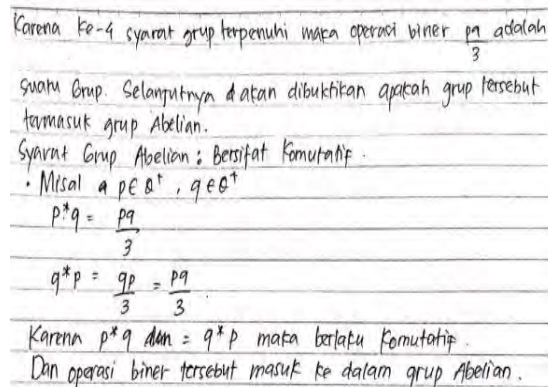 Karena ke-4 syarat grup terpenuhi maka operasi biner pq/3 adalah
suatu Grup. Selanjutnya akan dibuktikan apakah grup tersebut
termasuk grup Abelian.
Syarat Grup Abelian : Bersifat Komutatif.
• Misal p ∈ Q⁺, q ∈ Q⁺
p*q = pq/3
q*p = qp/3 = pq/3.
Karena p*q = q*p maka berlaku Komutatif.
Dan operasi biner tersebut masuk ke dalam grup Abelian.